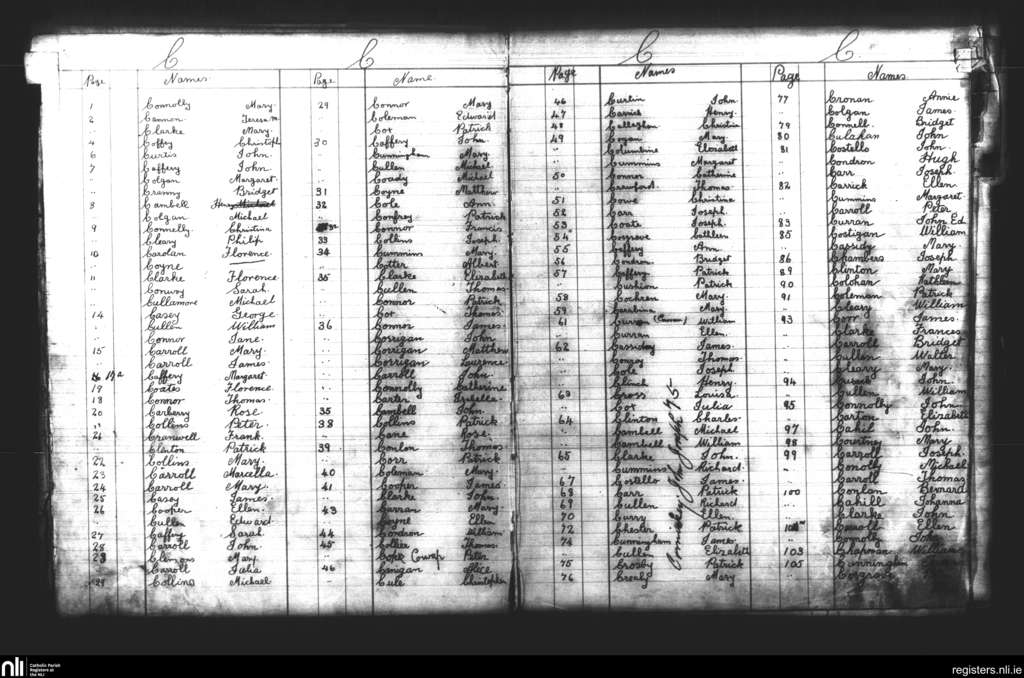 C
Page Names
1 Connolly Mary
2 Cannon Teresa M
.. Clarke Mary
4 Coffey Christoph
6 Curtis John
7 Caffery John
.. Colgan Margaret
.. Cranny Bridget
8 Cambell Henry Michael
.. Colgan Michael
9 Connelly Christina
.. Cleary Philip
10 Carolan Florence
.. Coyne
11 Clarke Florence
.. Conway Sarah
.. Cullamore Michael
14 Casey George
.. Cullen William
.. Connor Jane
15 Carroll Mary
.. Carroll James
17a Caffery Margaret
19 Coates Florence
18 Connor Thomas
20 Carberry Rose
.. Collins Peter
21 Cranwell Frank
.. Clinton Patrick
22 Collins Mary
23 Carroll Marcella
24 Carroll Mary
25 Casey James
26 Cooper Ellen
.. Cullen Edward
27 Caffery Sarah
28 Carroll John
28 Clemons Mary
.. Carroll Julia
29 Collins Michael
C
Page Name
29 Connor Mary
.. Coleman Edward
.. Cox Patrick
30 Caffery John
.. Cunningham Mary
.. Cullen Michael
.. Coady Michael
31 Coyne Matthew
32 Cole Ann
.. Comfrey Patrick
32 Connor Francis
33 Collins Joseph
34 Cummins Mary
.. Cotter Albert
35 Clarke Elizabeth
.. Cullen Thomas
.. Connor Patrick
.. Cox Thomas
36 Connor James
.. Corrigan John
.. Corrigan Matthew
.. Corrigan Laurence
.. Carroll John
.. Connolly Catherine
.. Carter Isabella
35 Cambell John
38 Collins Patrick
.. Cane Rose
39 Conlon Thomas
.. Corr Patrick
40 Coleman Mary
41 Cooper James
.. Clarke John
43 Curran Mary
.. Coyne Ellen
44 Condron William
45 Collier Thomas
.. Coke Peter
46 Alice
.. Cule Christopher
C
Page Names
46 Curtin John
47 Carrick Henry
48 Callaghan Christina
49 Cogan Mary
.. Columbine Elizabeth
.. Cummins Margaret
50 Connor Catherine
.. Crawford Thomas
51 Cowe Christina
52 Carr Joseph
53 Coats Joseph
54 Cosgrove Cathleen
55 Caffery Ann
56 Condron Bridget
57 Caffery Patrick
.. Cushion Patrick
58 Cochren Mary
59 Mary
61 (Curran) William
.. Curran Ellen
62 Cassiday James
.. Conroy Thomas
.. Cole Joseph
.. Clinch Henry
63 Cross Louisa
.. Cox Julia
64 Clinton Charles
.. Cambell Michael
.. Cambell William
65 Clarke John
.. Cummins Richard
67 Costello James
68 Carr Patrick
69 Cullen Richard
70 Curry Ellen
72 Chesler Patrick
74 Cunningham James
.. Cullin Elizabeth
75 Crosby Patrick
76 Crealy Mary
Joseph 75
C
Page Names
77 Cronan Annie
.. Colgan James
79 Connell Bridget
80 Culahan John
81 Costello John
.. Condron Hugh
.. Carr Joseph
82 Carrick Ellen
.. Cummins Margaret
.. Carroll Peter
83 Curran John Ed
85 Costigan William
.. Cassidy Mary
86 Chambers Joseph
89 Clinton Mary
90 Colohan Kathleen
91 Coleman Patrick
.. Cleary William
93 Corr James
.. Clarke Frances
.. Carroll Bridget
.. Cullen Walter
.. Cleary Mary
94 Cusack John
.. Cullen William
95 Connolly John
.. Carton Elizabeth
97 Cahil John
98 Courtney Mary
99 Carroll Joseph
.. Conolly Michael
.. Carroll Thomas
100 Conlan Bernard
.. Cahill Johanna
.. Clarke John
Carroll Ellen
.. Connolly John
103 Chapman William
105 Cunningham
.. Cosgrove
nli Catholic Parish Registers at the NLI
registers.nli.ie